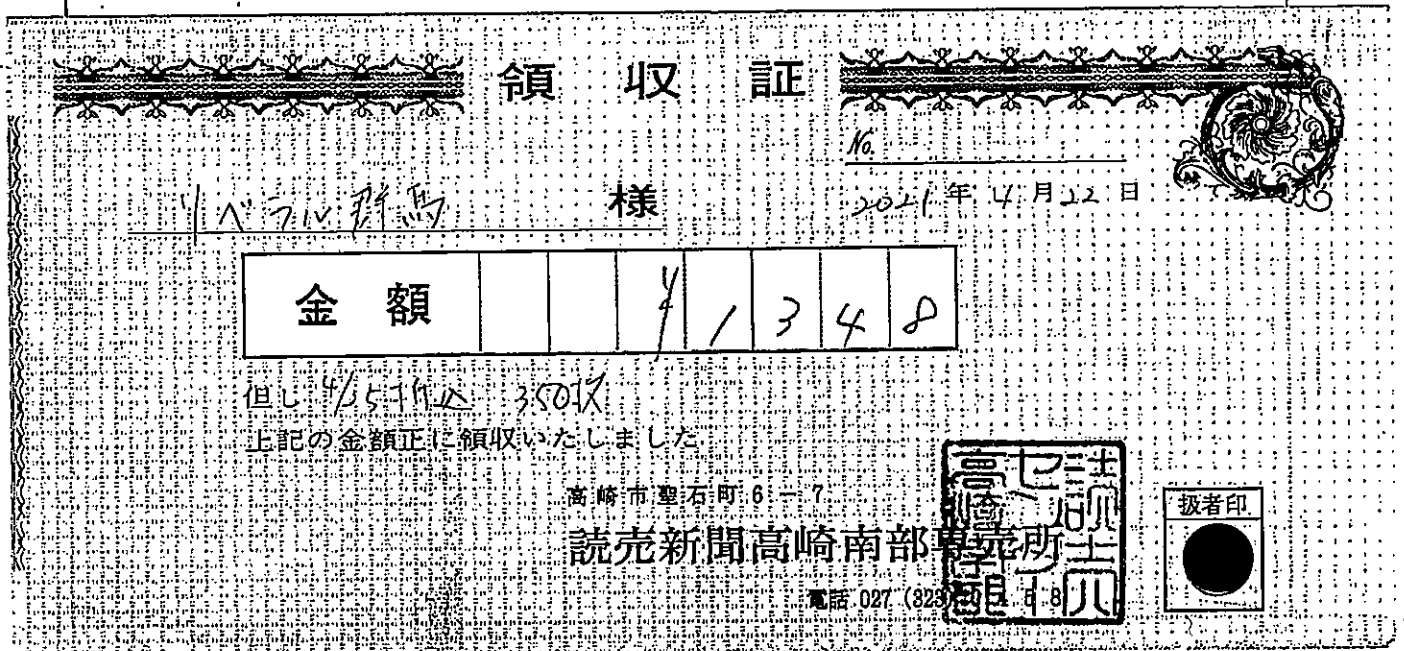 領収証
No.
リベラル群馬 様
2021年4月22日
金額 ¥1348
但し 4/25折込 350枚
上記の金額正に領収いたしました
高崎市聖石町6-7
読売新聞高崎南部専売所
扱者印
電話 027 (323)